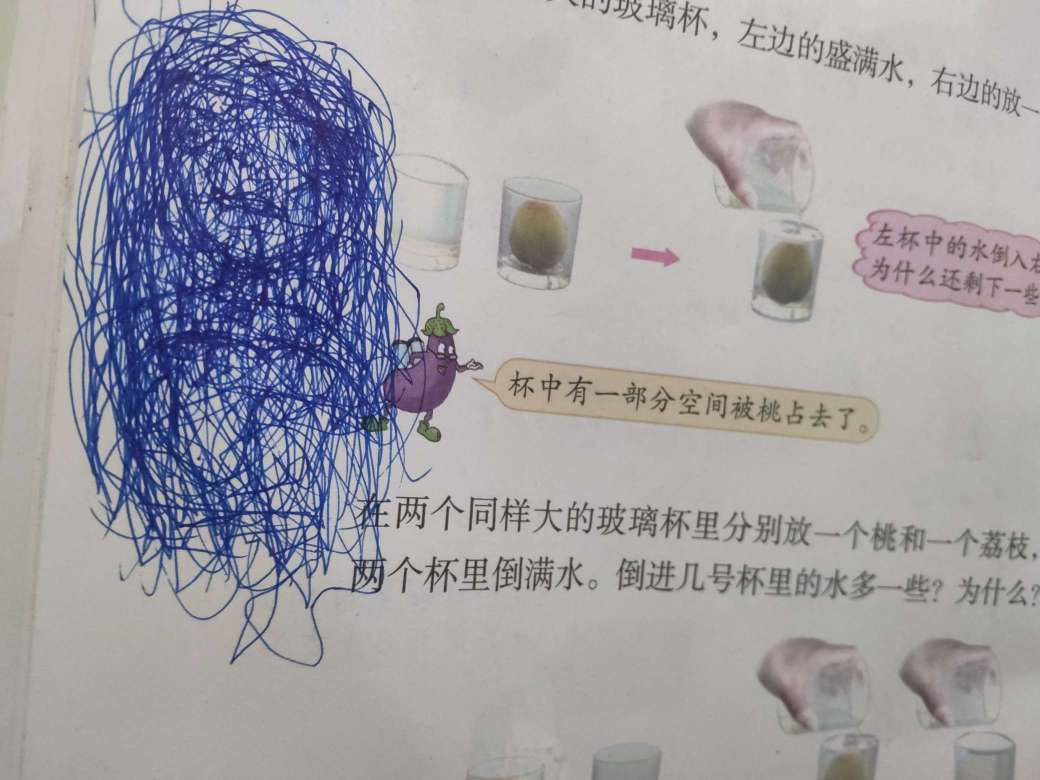 的玻璃杯，左边的盛满水，右边的放一
左杯中的水倒入右
为什么还剩下一些
杯中有一部分空间被桃占去了。
在两个同样大的玻璃杯里分别放一个桃和一个荔枝，
两个杯里倒满水。倒进几号杯里的水多一些？为什么？